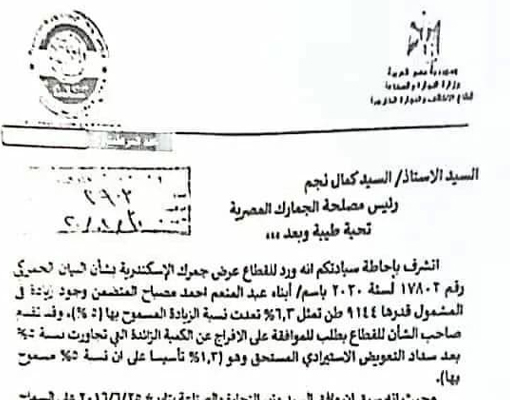 جمهورية مصر العربية
وزارة التجارة والصناعة
قطاع الاتفاقيات والتجارة الخارجية
السيد الاستاذ/ السيد كمال نجم
رئيس مصلحة الجمارك المصرية
تحية طيبة وبعد ،،،
اتشرف بإحاطة سيادتكم انه ورد للقطاع عرض جمرك الإسكندرية بشأن البيان الجمركي
رقم ١٧٨٠٢ لسنة ٢٠٢٠ باسم/ أبناء عبد المنعم احمد مصباح المتضمن وجود زيادة في
المشمول قدرها ٩١٤٤ طن تمثل ٦,٣% تعدت نسبة الزيادة المسموح بها (٥%)، وقد تقدم
صاحب الشأن للقطاع بطلب للموافقة على الافراج عن الكمية الزائدة التي تجاوزت نسبة ٥%
بعد سداد التعويض الاستيرادي المستحق وهو (١,٣% تأسيسا على ان نسبة ٥% مسموح
بها).